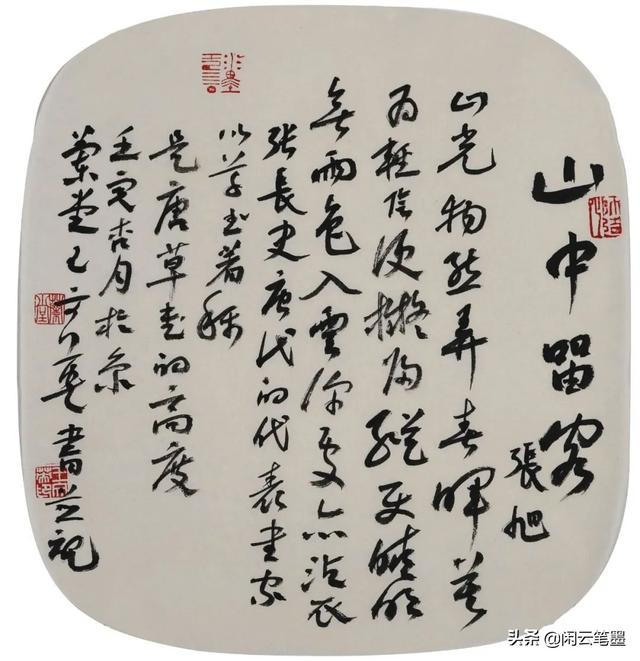 山中留客
張旭
山光物態弄春暉莫
為輕陰便擬歸縱使晴明
無雨色入雲深處亦沾衣
張長史唐代的代表書家
以草書著稱
是唐草書的高度
壬寅杏月於京
蘭堂 書並記
头条 @闲云笔墨